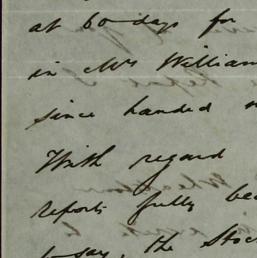 at 60 days for
in Mr William
since handed
With regard
reports fully be
to say, the Stoc